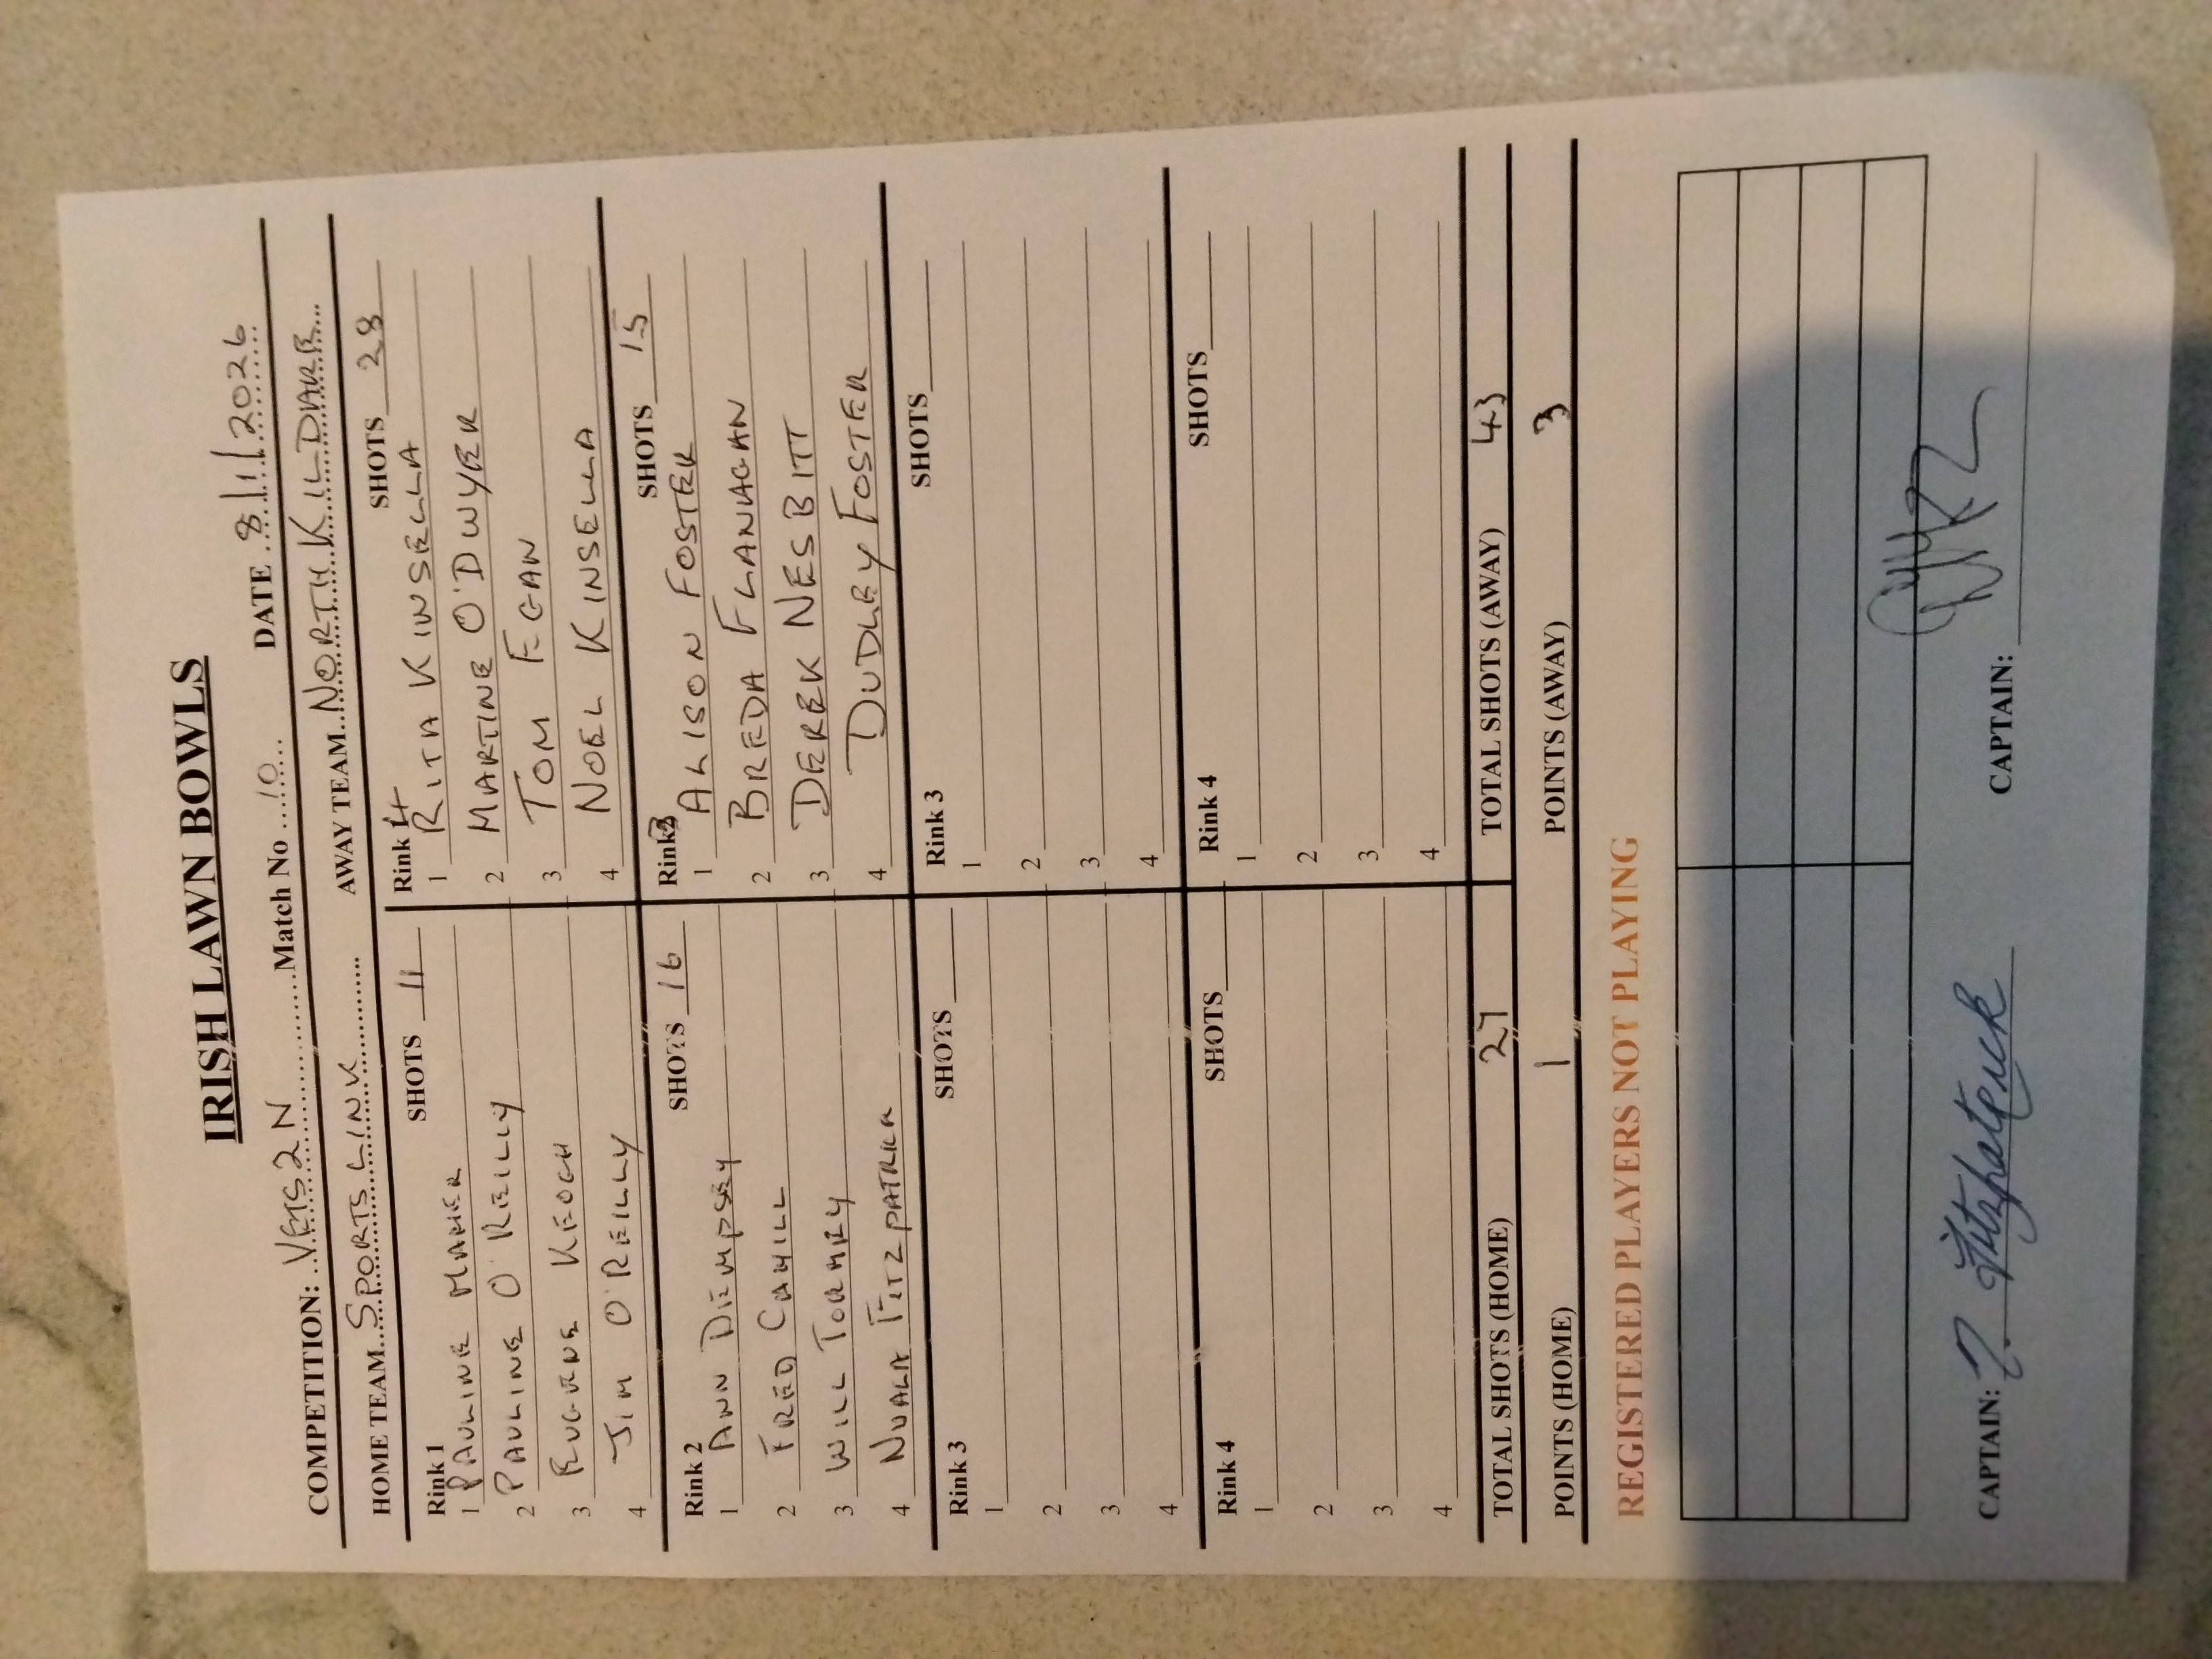 IRISH LAWN BOWLS
COMPETITION: VETS 2 N Match No 10 DATE 8/1/2026
HOME TEAM SPORTS LINK AWAY TEAM NORTH KILDARE
Rink 1 SHOTS 11
1 PAULINE MAHER
2 PAULINE O'REILLY
3 EUGENE KEOGH
4 JIM O'REILLY
Rink 4 SHOTS 28
1 RITA KINSELLA
2 MARTINE O'DWYER
3 TOM EGAN
4 NOEL KINSELLA
Rink 2 SHOTS 16
1 ANN DEMPSEY
2 FRED CAHILL
3 WILL TORMEY
4 NUALA FITZPATRICK
Rink 3 SHOTS 15
1 ALISON FOSTER
2 BREDA FLANAGAN
3 DEREK NESBITT
4 DUDLEY FOSTER
Rink 3 SHOTS
1
2
3
4
Rink 3 SHOTS
1
2
3
4
Rink 4 SHOTS
1
2
3
4
Rink 4 SHOTS
1
2
3
4
TOTAL SHOTS (HOME) 27 TOTAL SHOTS (AWAY) 43
POINTS (HOME) 1 POINTS (AWAY) 3
REGISTERED PLAYERS NOT PLAYING
CAPTAIN: Fitzpatrick CAPTAIN: